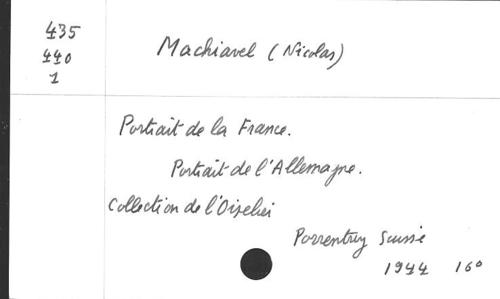 435
440
1
Machiavel (Nicolas)
Portrait de la France.
Portrait de l'Allemagne.
Collection de l'Oiselier
Porrentruy Suisse
1944 16°